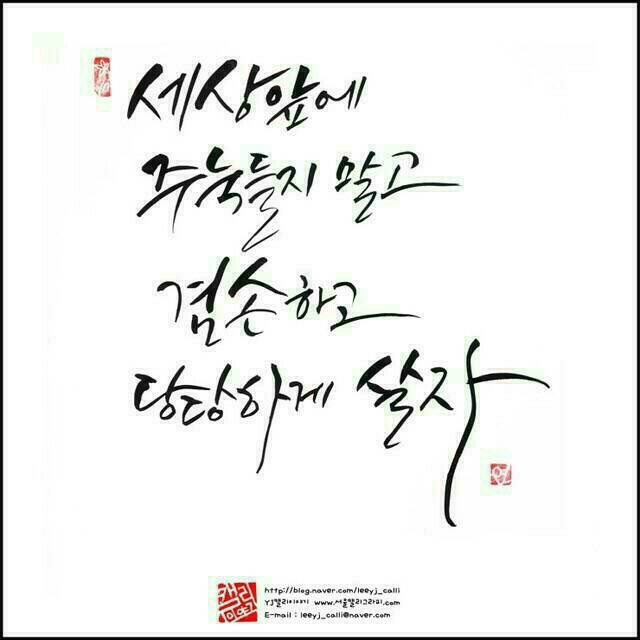 세상앞에
주눅들지 말고
겸손하고
당당하게 살자
캘리
이야기
http://blog.naver.com/leeyj_calli
YJ캘리이야기 www.서울캘리그라피.com
E-mail : leeyj_calli@naver.com